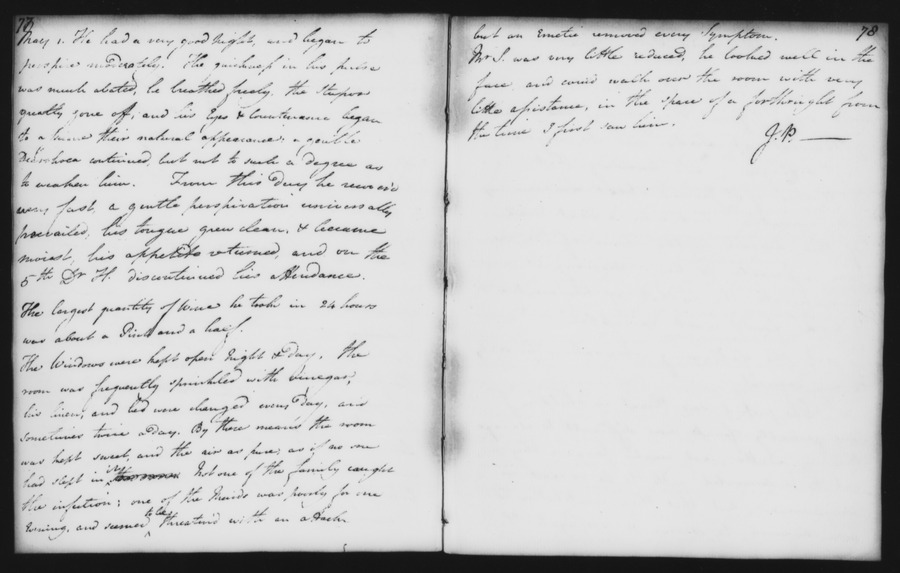 77
May 1. He had a very good night, and began to
perspire moderately. The quickness in his pulse
was much abated, he breathed freely. the Stupor
greatly gone off; and his Eyes & Countenance began
to assume their natural appearance. a gentle
Diarrhœa continued, but not to such a degree as
to weaken him. From this Day he recover'd
very fast, a gentle perspiration universally
prevailed, his tongue grew clean, & became
moist, his appetite returned, and on the
5th Dr H. discontinued his attendance.
The largest quantity of Wine he took in 24 hours
was about a Pint and a half.
The Windows were kept open night & day, the
room was frequently sprinkled with vinegar,
his linen, and bed were changed every day, and
sometimes twice a day. By these means the room
was kept sweet, and the air as pure, as if no one
had slept in it. Not one of the family caught
the infection; one of the Maids was poorly for one
Evening, and seemed to be threaten'd with an attack
78
but an Emetic removed every Symptom.
Mr S. was very little reduced, he looked well in the
face and could walk over the room with very
little assistance, in the space of a forthnight from
the time I first saw him.
J.P.